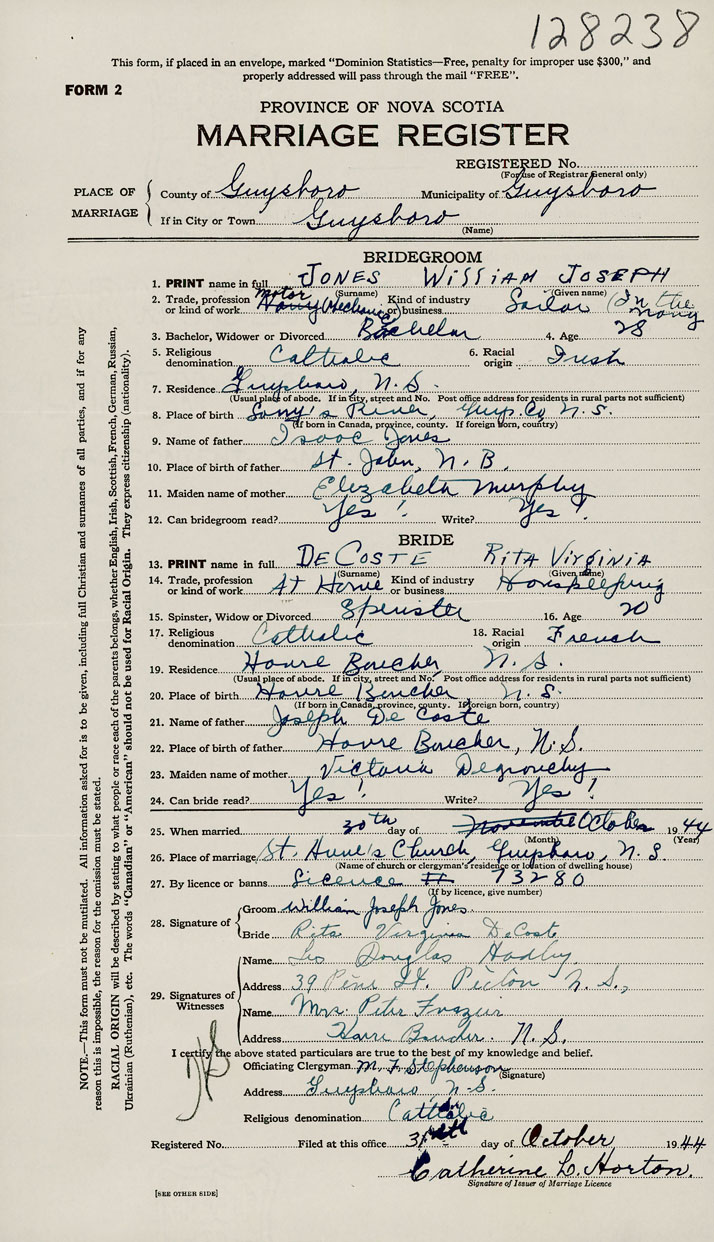 128238
This form, if placed in an envelope, marked "Dominion Statistics—Free, penalty for improper use $300," and
properly addressed will pass through the mail "FREE".
FORM 2
PROVINCE OF NOVA SCOTIA
MARRIAGE REGISTER
REGISTERED No.
(For use of Registrar General only)
PLACE OF MARRIAGE
County of Guysboro Municipality of Guysboro
If in City or Town Guysboro
(Name)
BRIDEGROOM
1. PRINT name in full JONES WILLIAM JOSEPH
(Surname) (Given name)
2. Trade, profession or kind of work motor (Mechanic) Kind of industry or business Sailor (In the navy
3. Bachelor, Widower or Divorced Bachelor 4. Age 28
5. Religious denomination Catholic 6. Racial origin Irish
7. Residence Guysboro, N.S.
(Usual place of abode. If in city, street and No. Post office address for residents in rural parts not sufficient)
8. Place of birth River, Guys. Co N.S.
(If born in Canada, province, county. If foreign born, country)
9. Name of father Isaac Jones
10. Place of birth of father St. John, N.B.
11. Maiden name of mother Elizabeth Murphy
12. Can bridegroom read? Yes! Write? Yes!
BRIDE
13. PRINT name in full DECOSTE RITA VIRGINIA
(Surname) (Given name)
14. Trade, profession or kind of work At Home Kind of industry or business Houskeeping
15. Spinster, Widow or Divorced Spinster 16. Age 20
17. Religious denomination Catholic 18. Racial origin French
19. Residence Havre Boucher N.S.
(Usual place of abode. If in city, street and No. Post office address for residents in rural parts not sufficient)
20. Place of birth Havre Boucher N.S.
(If born in Canada, province, county. If foreign born, country)
21. Name of father Joseph De Coste
22. Place of birth of father Havre Boucher, N.S.
23. Maiden name of mother Victoria Degrouchy
24. Can bride read? Yes! Write? Yes!
25. When married 30th day of October 1944
(Month) (Year)
26. Place of marriage St. Church, Guysboro, N.S.
(Name of church or clergyman's residence or location of dwelling house)
27. By licence or banns Licence # 73280
(If by licence, give number)
28. Signature of
Groom William Joseph Jones
Bride Rita Virginia DeCoste
29. Signatures of Witnesses
Name Leo Douglas Hadley
Address 39 Pine St. Pictou N.S.,
Name Mrs. Peter Frazier
Address Havre Boucher N.S.
I certify the above stated particulars are true to the best of my knowledge and belief.
Officiating Clergyman M. F. Stephenson
(Signature)
Address Guysboro, N.S.
Religious denomination Catholic
Registered No. Filed at this office 31st day of October 1944
Catherine L. Horton.
Signature of Issuer of Marriage Licence
[SEE OTHER SIDE]
NOTE.—This form must not be mutilated. All information asked for is to be given, including full Christian and surnames of all parties, and if for any
reason this is impossible, the reason for the omission must be stated.
RACIAL ORIGIN will be described by stating to what people or race each of the parents belongs, whether English, Irish, Scottish, French, German, Russian,
Ukrainian (Ruthenian), etc. The words "Canadian" or "American" should not be used for Racial Origin. They express citizenship (nationality).